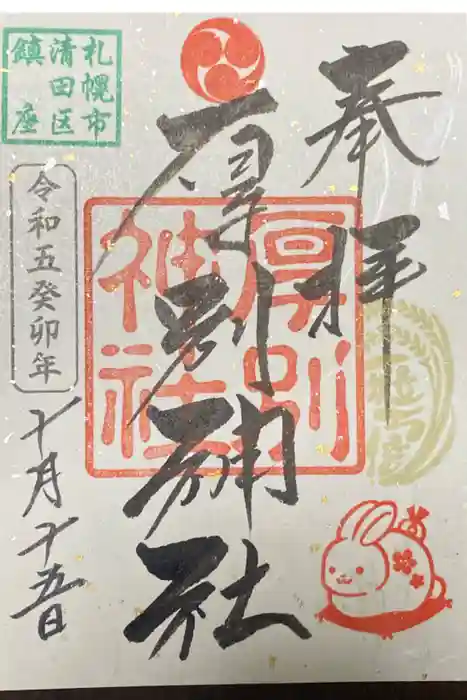 奉拝
厚別神社
厚別
神社
札幌市
清田区
鎮座
令和五癸卯年
十月十五日
一粒万倍